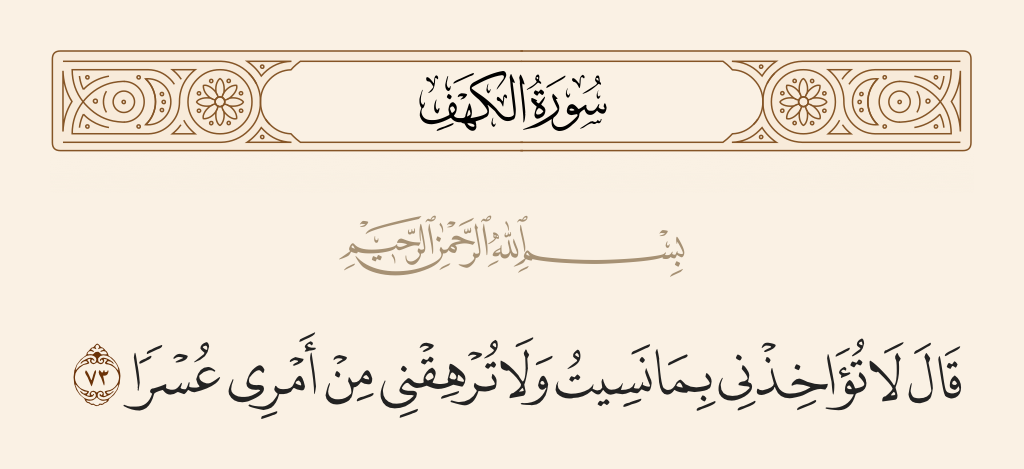 سُورَةُ الكَهۡفِ
بِسۡمِ ٱللَّهِ ٱلرَّحۡمَٰنِ ٱلرَّحِيمِ
قَالَ لَا تُؤَاخِذۡنِي بِمَا نَسِيتُ وَلَا تُرۡهِقۡنِي مِنۡ أَمۡرِي عُسۡرٗا ٧٣